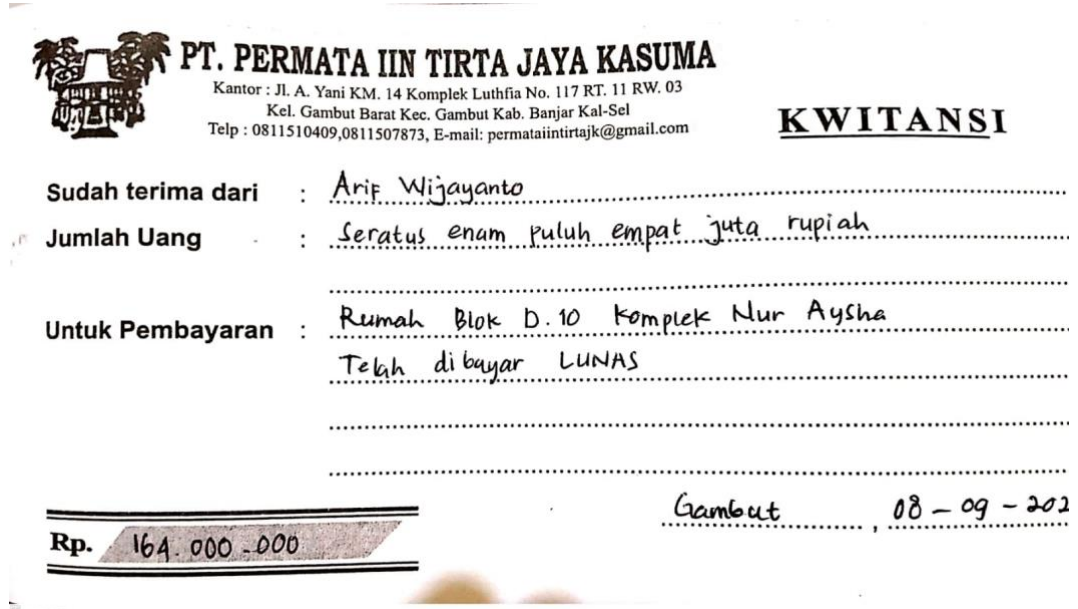 PT. PERMATA IIN TIRTA JAYA KASUMA
Kantor : Jl. A. Yani KM. 14 Komplek Luthfia No. 117 RT. 11 RW. 03
Kel. Gambut Barat Kec. Gambut Kab. Banjar Kal-Sel
Telp : 0811510409,0811507873, E-mail: permataiintirtajk@gmail.com
KWITANSI
Sudah terima dari : Arif Wijayanto
Jumlah Uang : Seratus enam puluh empat juta rupiah
Untuk Pembayaran : Rumah Blok D.10 Komplek Nur Aysha
Telah dibayar LUNAS
Gambut, 08-09-202
Rp. 164.000.000